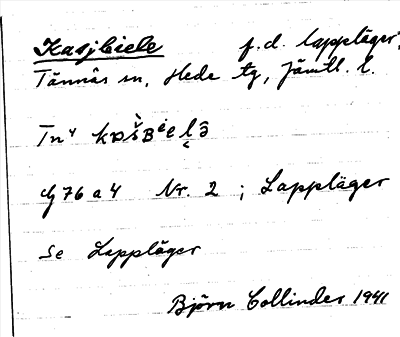 Kasjbiele f.d. lappläger,
Tännäs sn, Hede tg, Jämtl. l.
Tn4
Y 76 a 4 Nr. 2 ; Lappläger
Se Lappläger
Björn Collinder 1941